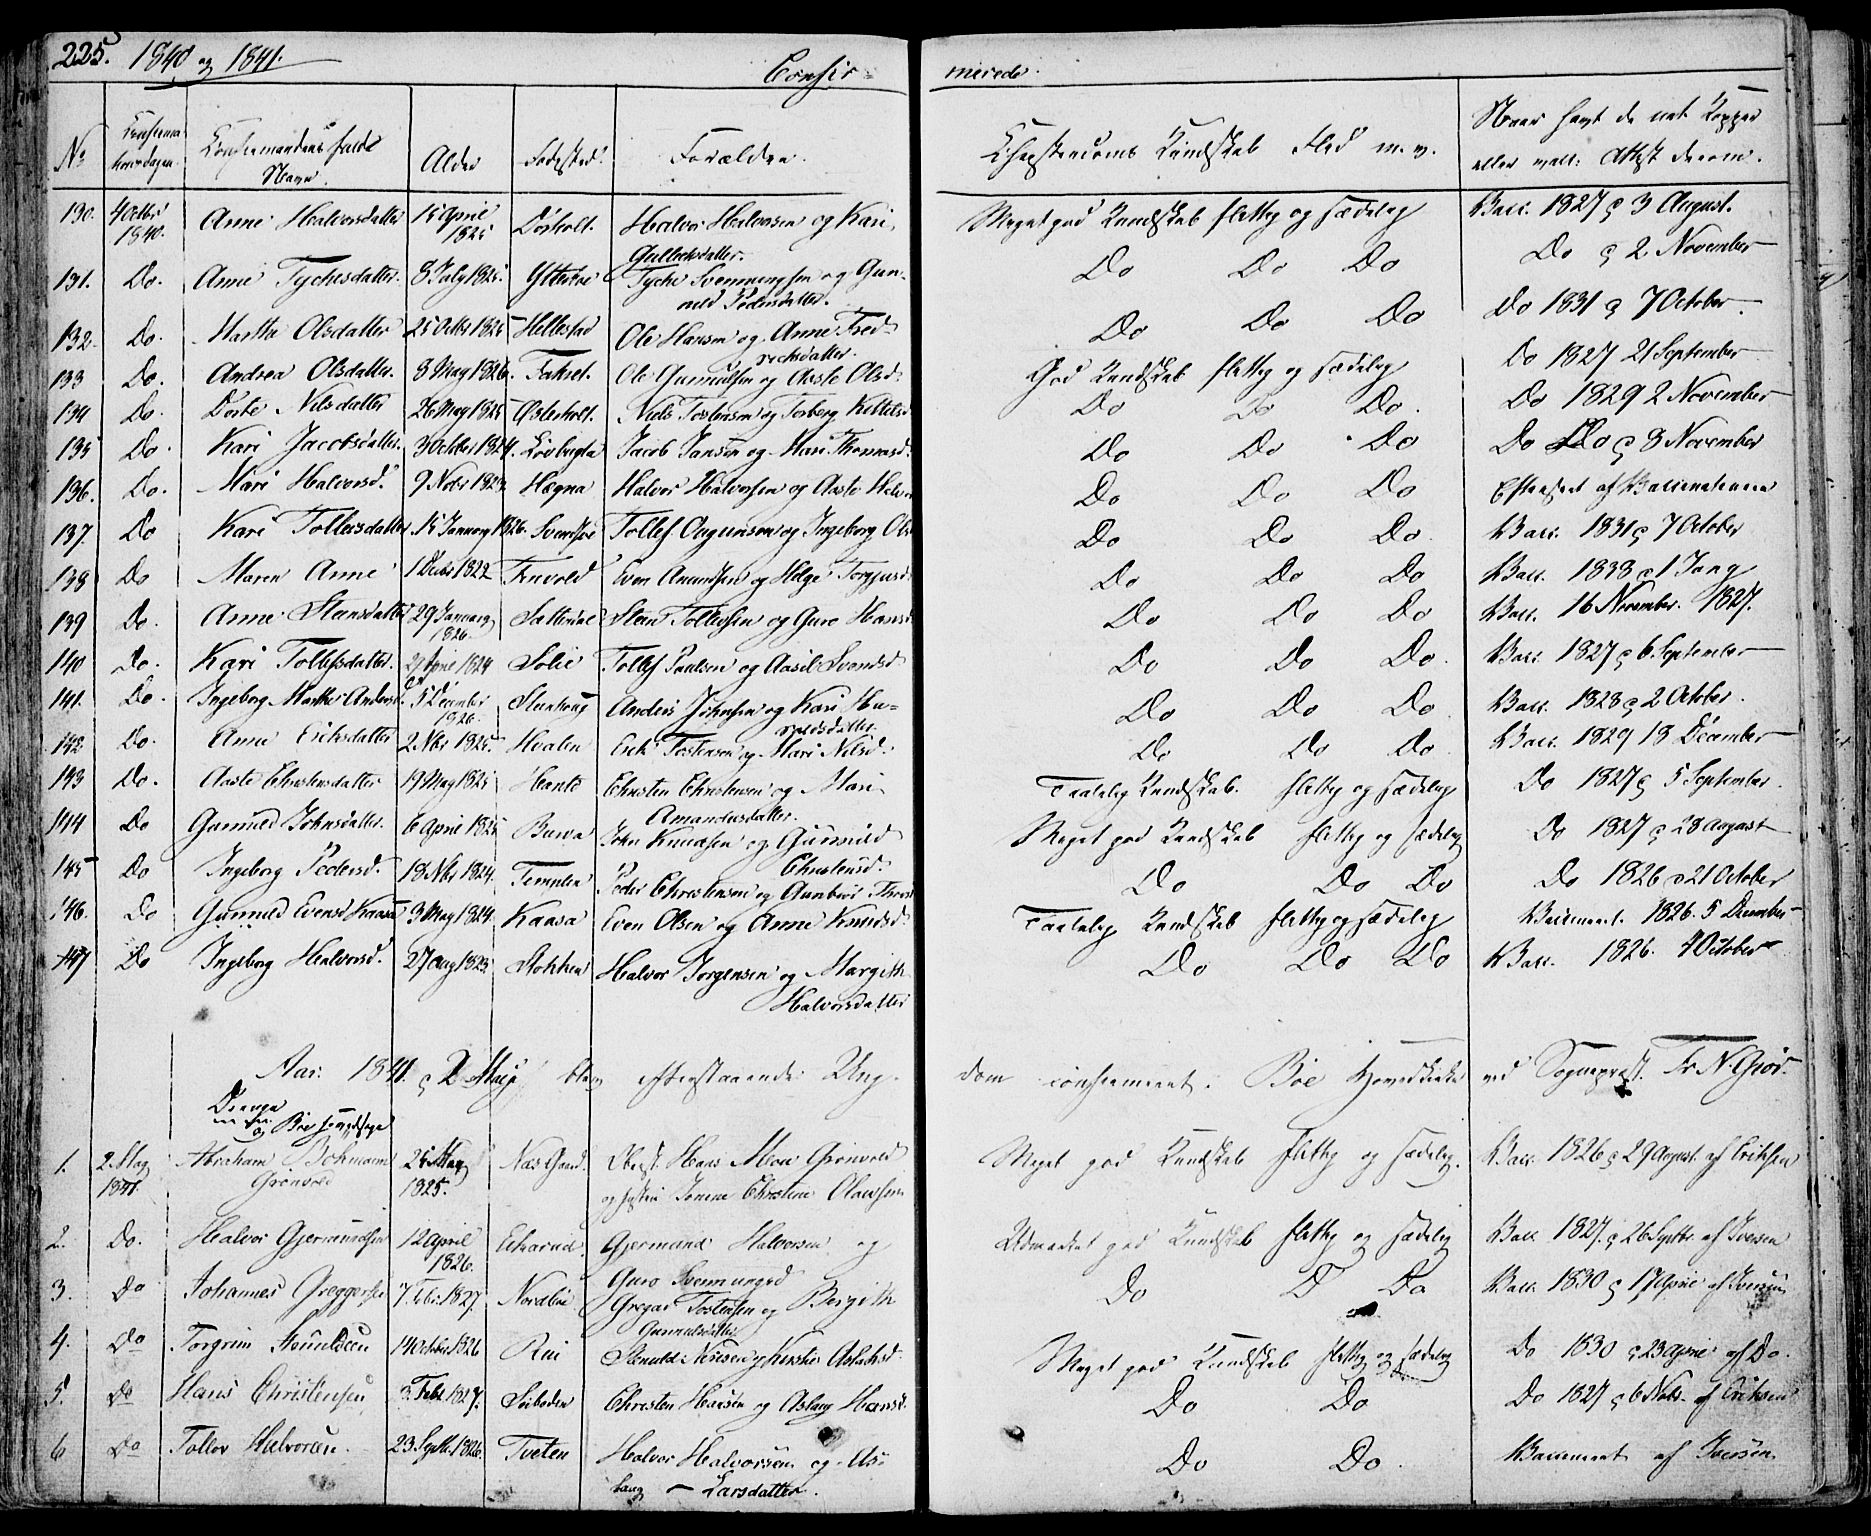 225. 1840 og 1841.
Confir-
merede.
No
Confirma-
tionsdagen.
Confirmandens fulde
Navn.
Alder
Fødested.
Forældre.
Christendoms Kundskab Flid m. v.
Naar havt de nat. Kopper
eller vacc: Attest derom.
130. 4 Octbr 1840. Anne Halvorsdatter 15 April 1825 Østerholt. Halvor Halvorsen og Kari Gulleksdatter. Meget god Kundskab flittig og sædelig Vacc. 1827 d 3 August.
131. Do. Anne Tychesdatter. 8 July 1825 Ytterbøe Tyche Svenningsen og Gunild Pedersdatter. Do Do Do Do d 2 November
132. Do. Marthe Olsdatter 25 Octbr 1825 Hellestad Ole Hansen og Anne Fredricksdatter. Do Do Do Do 1831 d 7 October
133 Do. Andrea Olsdatter. 8 May 1826. Ole Gunnulfsen og Aaste Olsd. God Kundskab flittig og sædelig Do 1827 21 September
134 Do. Dorte Nilsdatter 26 May 1825 Østerholt. Niels Tostensen og Torberg Kittelsd. Do Do Do. Do 1829 2 November
135 Do. Kari Jacobsdatter. 3 Octber 1824. Jacob Jansen og Mari Thomasd. Do Do Do Do Do d 3 November
136. Do. Mari Halvorsd. 9 Nobr 1823 Hægna Halvor Halvorsen og Aaste Halvor Do Do Do af Vaccinationen
137. Do Kari Tollefsdatter 15 January 1826. Tollef Augunsen og Ingeborg Ols Do Do Do. Vacc. 1831 d 7 October
138 Do Maren Anne 1 Decbr 1822 Tinvold Even Amundsen og Helge Torgjusd. Do Do Do Vacc. 1833 d 1
139 Do. Anne Steensdatter 29 January 1826. Satterdal Steen Tollevsen og Guro Hansd Do Do Do Vacc. 16 November 1827.
140 Do. Kari Tollefsdatter. 29 April 1824 Solie Tollef Paulsen og Aasil Svendsd Do Do Do. Vacc. 1827 d 6 September
141. Do. Ingeborg Marthe Andersd. 5 December 1826. Anders Johnsen og Kari Do Do Do Vacc. 1828 d 2 October.
142 Do. Anne Eriksdatter 2 Nbr 1825 Hvalen Erik Tostensen og Mari Nilsd. Do Do Do. Vacc. 1829 18 December
143 Do. Aaste Christensdatter 19 May 1825 Hante Christen Christensen og Mari Amundsdatter. Taalelig Kundskab. flittig og sædelig Do 1827 d 5 September.
144 Do Gunnild Johnsdatter. 6 April 1825 John Knudsen og Gunnild Christensd. Meget god Kundskab flittig og sædelig Do 1827 d 28 August
145 Do Ingeborg Pedersd. 18 Nbr 1824. Templen Peder Christensen og Gunbior Do Do Do Do 1826 d 21 October
146. Do Gunnild Evensd Kaasa 3 May 1824. Kaasa Even Olsen og Anne Knudsd. Taalelig Kundskab flittig og sædelig Vaccineret. 1826. 5 December
147 Do Ingeborg Halvorsd. 27 Aug 1823. Stokken Halvor Jorgensen og Margith Halvorsdatter Do Do Do Vacc. 1826. 4 October
Aar: 1841. d 2 May blev efterstaaende Ung-
dom confirmeret i Bøe Hovedkirke ved Sogneprest Fr. N. Giør.
Drenge
af Bøe Hovedsogn
1. 2 May 1841. Abraham Bohmann Grønvold 25 May 1825. Næs Gaard. Oberst. Hans Moe Grønvold og Hustru Jonine Christine Olausen Meget god Kundskab flittig og sædelig. Vacc. 1826 d 29 August af Eriksen
2. Do. Halvor Gjermundsen 12 April 1826. Eikarud Gjermund Halvorsen og Guro Svenningsd Udmærket god Kundskab flittig og sædelig Vacc. 1827. d 26 Septbr. af Iversen
3. Do Johannes Greggersen 7. Febr: 1827. Nordbøe Gregar Tostensen og Bergith Gunnulsdatter Do D Do Vacc. 1830 d 17 April af Iversen
4. Do Torgrim Amundsen 14 October 1826 Rui og Kirstie Aslachsd. Meget god Kundskab flittig og sædelig Do 1830 d 23 April af Do.
5. Do Hans Christensen 3. Febr. 1827. Seiboden Christen Hansen og Aslaug Hansd. Do Do Do 1827 d 6 Nobr. af Eriksen
6 Do Tollev Halvorsen. 23. Septbr. 1826. Tveten Halvor Halvorsen og As-
laug Larsdatter. Do Do. Vaccineret af Iversen